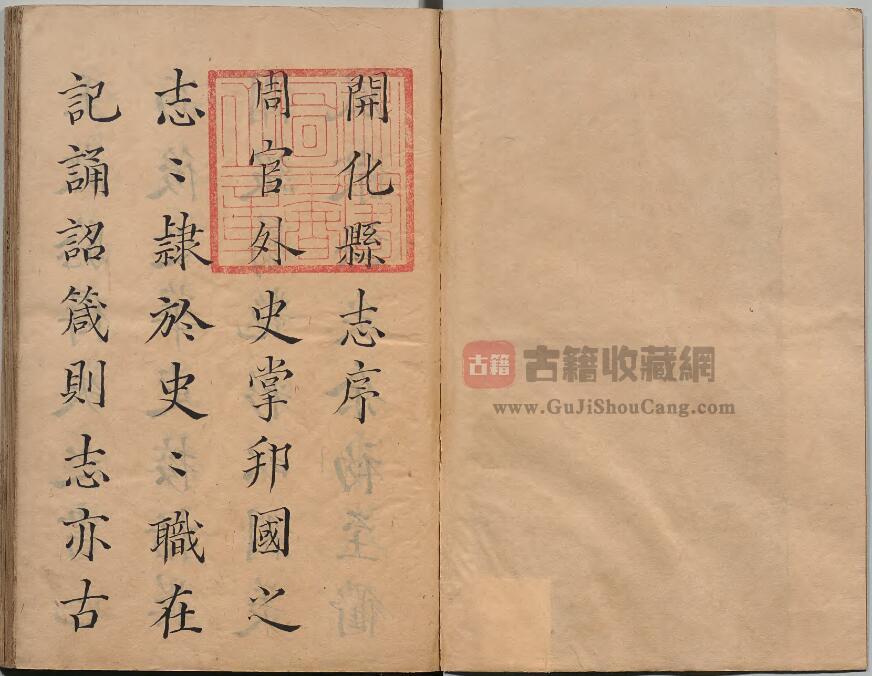 開化縣志序
周官外史掌邦國之
志〻隷於史〻職在
記誦詔箴則志亦古
古籍
古籍收藏網
www.GuJiShouCang.com